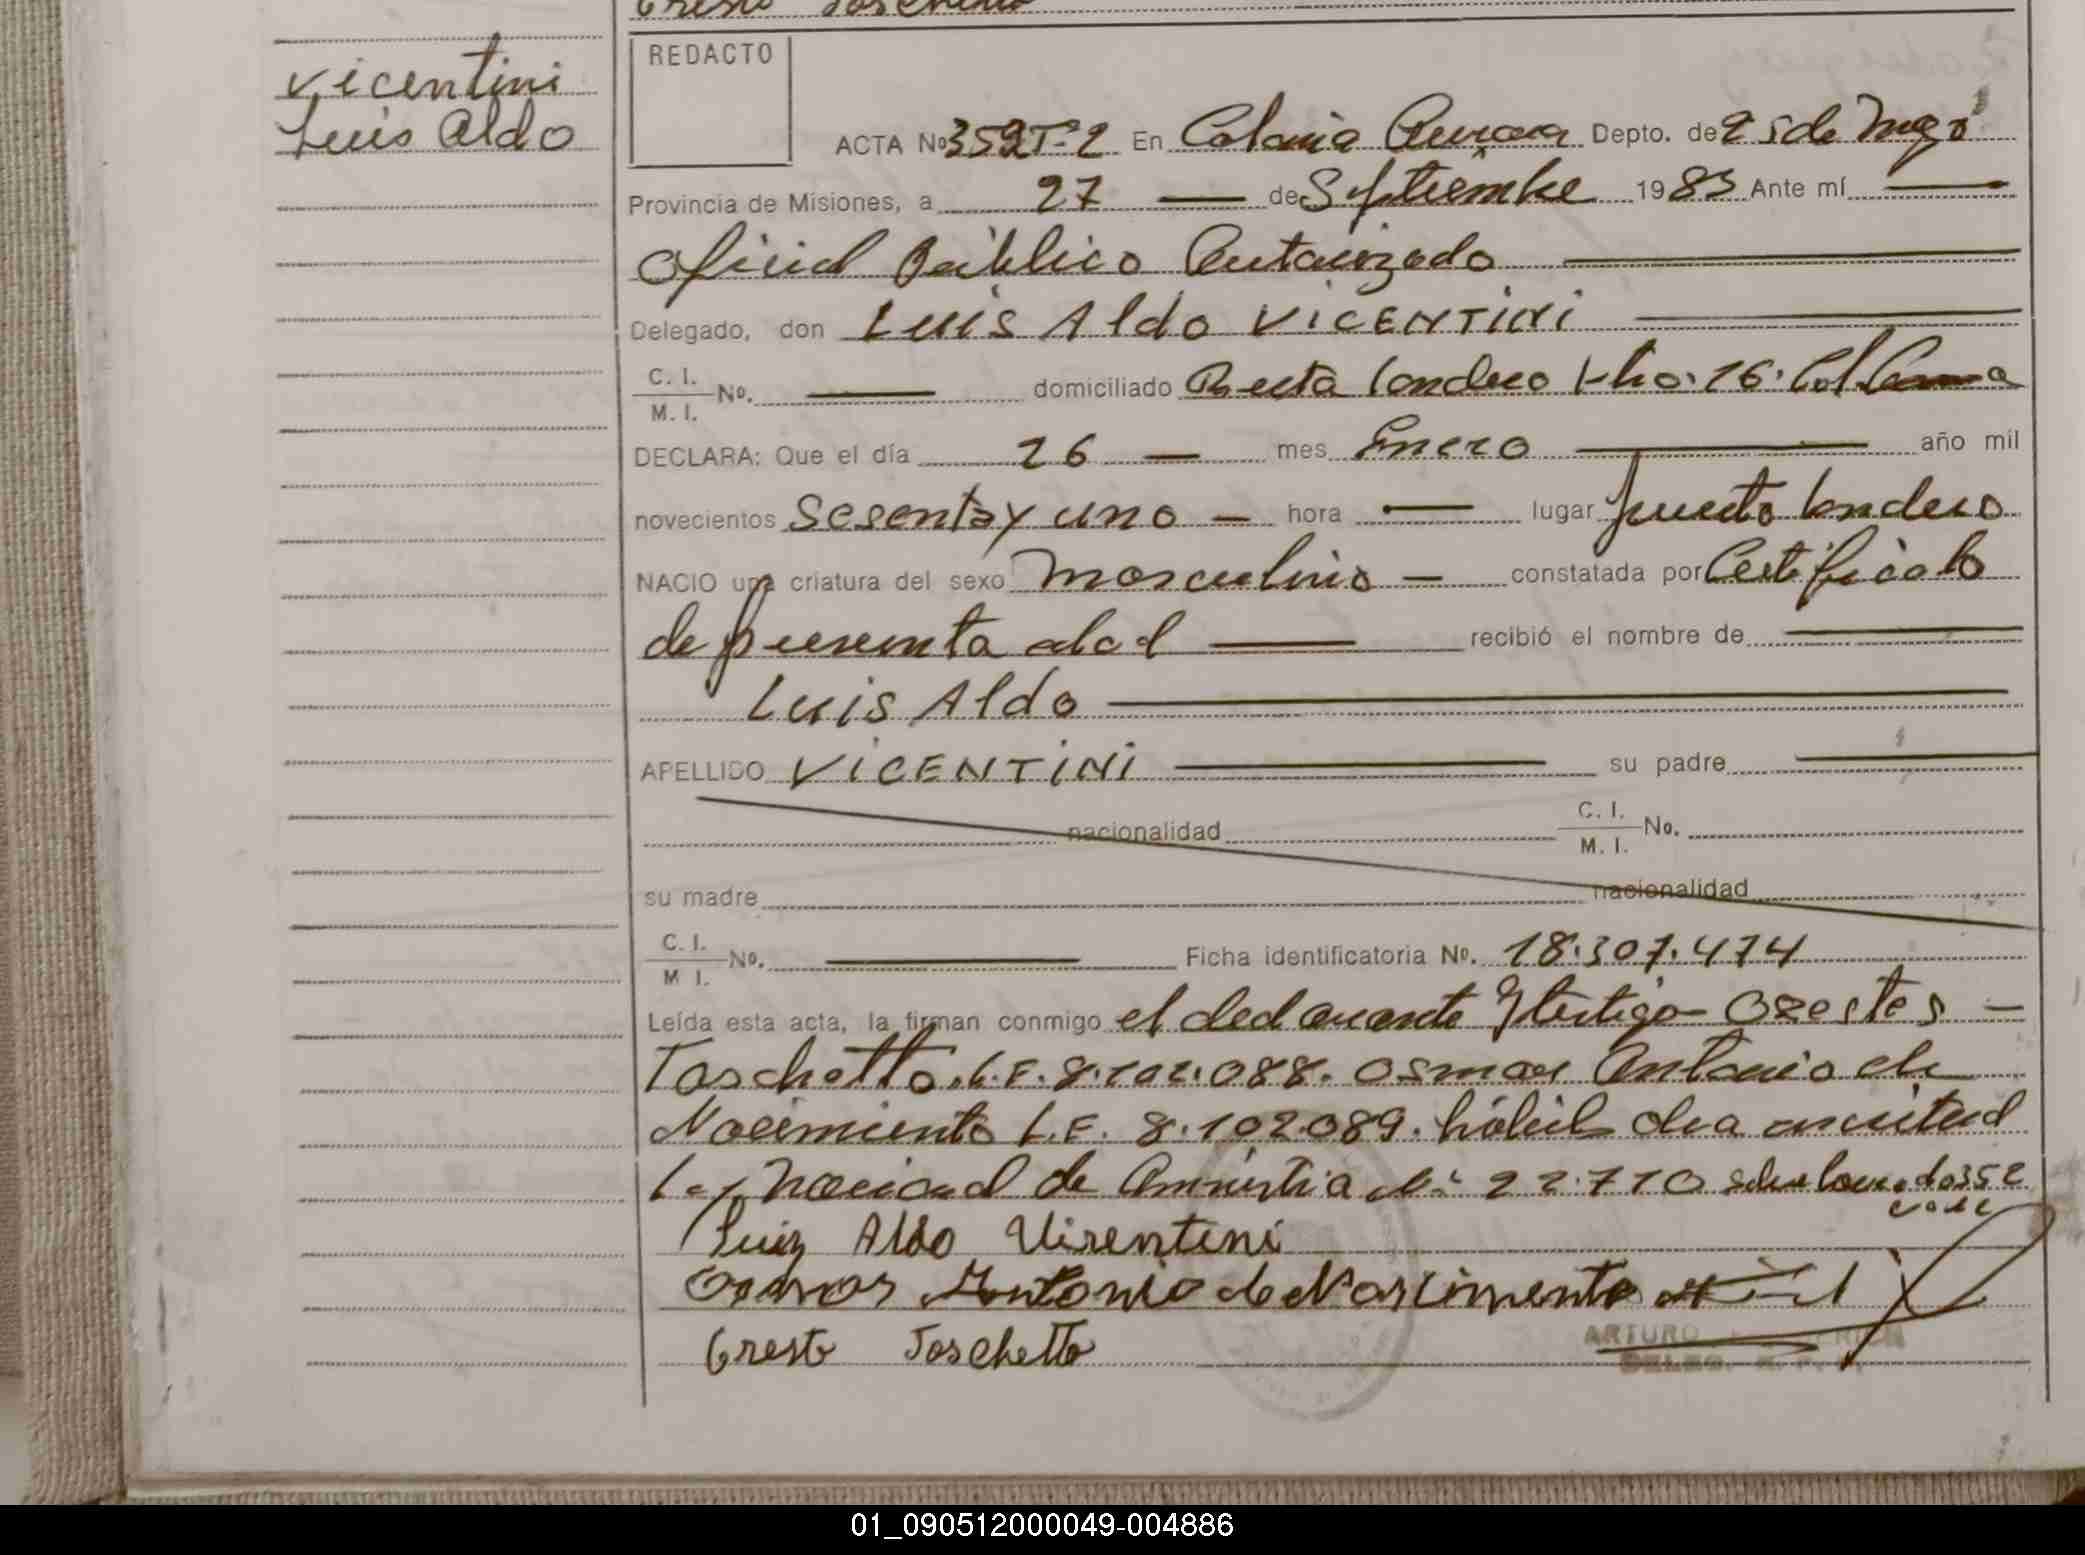 Vicentini
Luis Aldo
REDACTO
ACTA Nº 352 T-2 En Colonia Aurora Depto. de 25 de Mayo
Provincia de Misiones, a 27 — de Septiembre 1983 Ante mí —
Oficial Público Autorizado —
Delegado, don Luis Aldo VICENTINI —
C. I.
M. I. No. — domiciliado Recta Londero Kho. 16. Col
DECLARA: Que el día 26 — mes Enero — año mil
novecientos Sesenta y uno — hora — lugar puerto Londero
NACIO una criatura del sexo masculino — constatada por Certificado
de presunta edad — recibió el nombre de —
Luis Aldo —
APELLIDO VICENTINI — su padre —
nacionalidad C. I.
M. I. No.
su madre nacionalidad
C. I.
M I. No. — Ficha identificatoria Nº. 18.307.474
Leída esta acta, la firman conmigo el declarante y testigo- Orestes —
Toschetto. L.E. 8.102.088. Osmar Antonio de
Nacimiento L.E. 8.102089. hábil
Ley Nacional de Amnistia Nº 22.710 352
vale
Luiz Aldo Visentini
Osmar Antonio de Nascimento
Oreste Toschetto
ARTURO
DELEG. R. P.
01_090512000049-004886